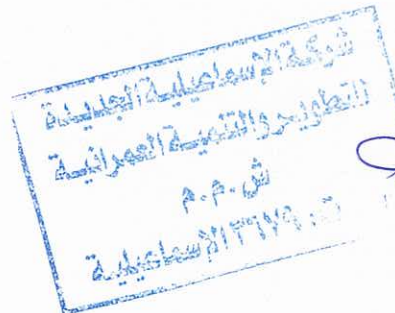 شركة الإسماعيلية الجديدة
للتطوير والتنمية العمرانية
ش.م.م
ت: ٣٦١٧٩ الإسماعيلية